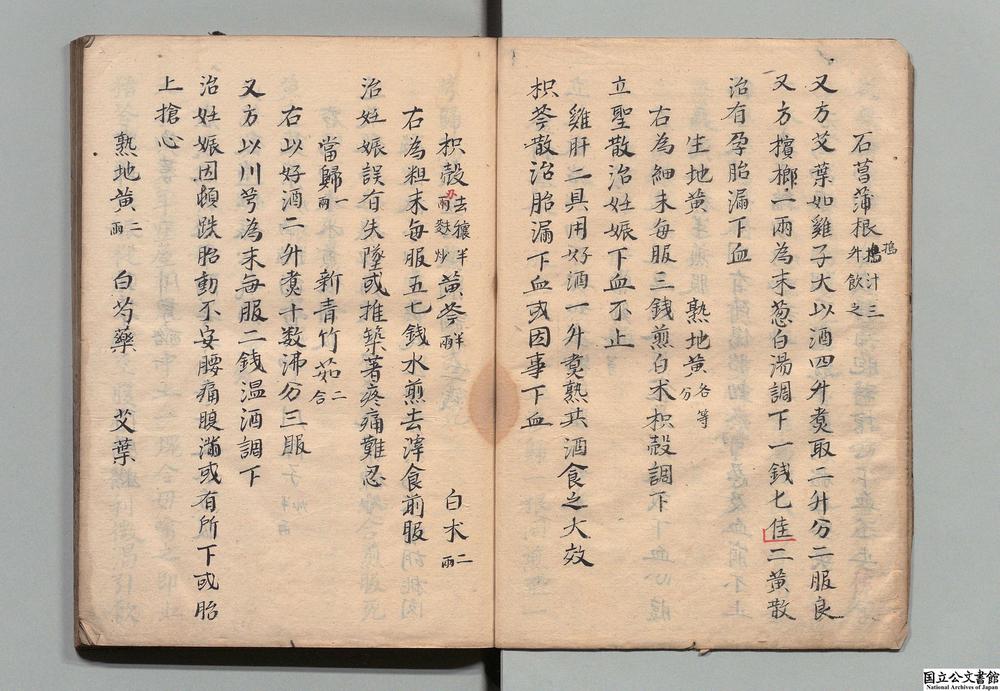 石菖蒲根搗搗汁三升飲之
又方艾葉如雞子大以酒四升煑取二升分二服良
又方檳榔一兩為末葱白湯調下一錢七佳二黄散
治有孕胎漏下血
生地黄 熟地黄各等分
右為細末每服三錢煎白朮枳殼調下
立聖散治妊娠下血不止
雞肝二具用好酒一升煑熟共酒食之大效
枳芩散治胎漏下血或因事下血
枳殼去穰半兩麩炒 黄芩半兩 白朮二兩
右為粗末每服五七錢水煎去滓食前服
治妊娠誤有失墜或推築著疼痛難忍
當歸一兩 新青竹茹二合
右以好酒二升煑十数沸分三服
又方以川芎為末每服二錢温酒調下
治妊娠因頓跌胎動不安腰痛腹滿或有所下或胎
上搶心
熟地黄二兩 白芍藥 艾葉
国立公文書館
National Archives of Japan